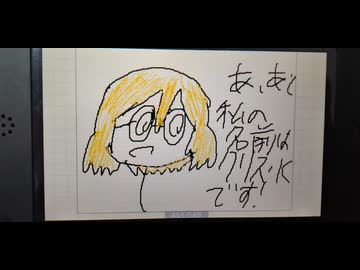 あ、あと
私の
名前は
クリス・K
です!